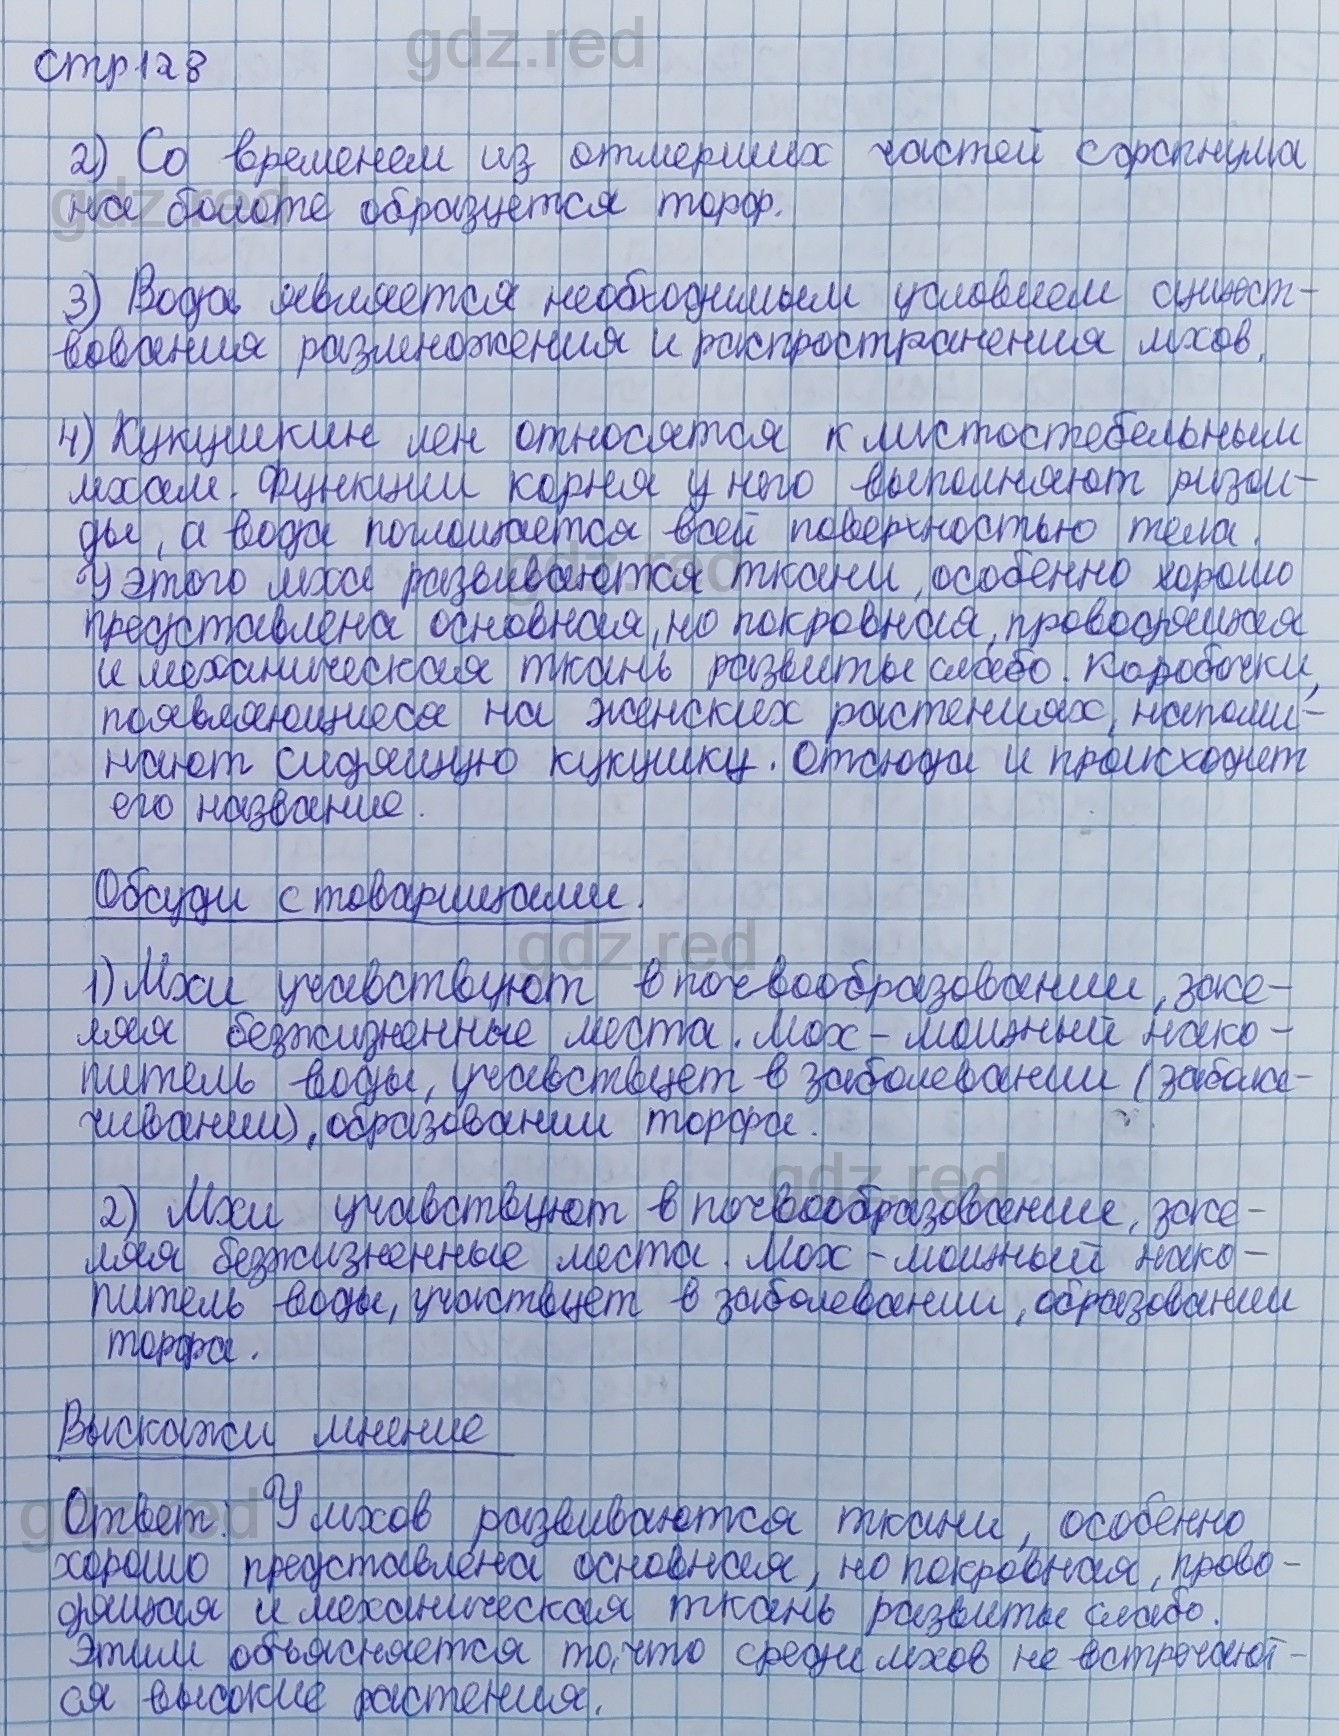 gdz.red
стр128
2) Со временем из отмерших частей сфагнума
gdz.red
на болоте образуется торф.
3) Вода является необходимым условием сущест-
вования размножения и распространения мхов.
4) Кукушкин лен относятся к листостебельным
мхам. Функции корня у него выполняют ризои-
ды, а вода поглощается всей поверхностью тела.
gdz.red
У этого мха развиваются ткани, особенно хорошо
представлена основная, но покровная, проводящая
и механическая ткань развиты слабо. Коробочки,
появляющиеся на женских растениях, напоми-
нают сидящую кукушку. Отсюда и происходит
его название.
Обсуди с товарищами.
gdz.red
1) Мхи учавствуют в почвообразовании, засе-
ляя безжизненные места. Мох - мощный нако-
питель воды, учавствует в заболевании (забола-
чивании), образовании торфа.
gdz.red
2) Мхи учавствуют в почвообразовании, засе-
ляя безжизненные места. Мох - мощный нако-
питель воды, участвует в заболевании, образовании
торфа.
Выскажи мнение
gdz.red
Ответ: У мхов развиваются ткани, особенно
хорошо представлена основная, но покровная, прово-
дящая и механическая ткань развиты слабо.
Этим объясняется то, что среди мхов не встречают-
ся высокие растения.